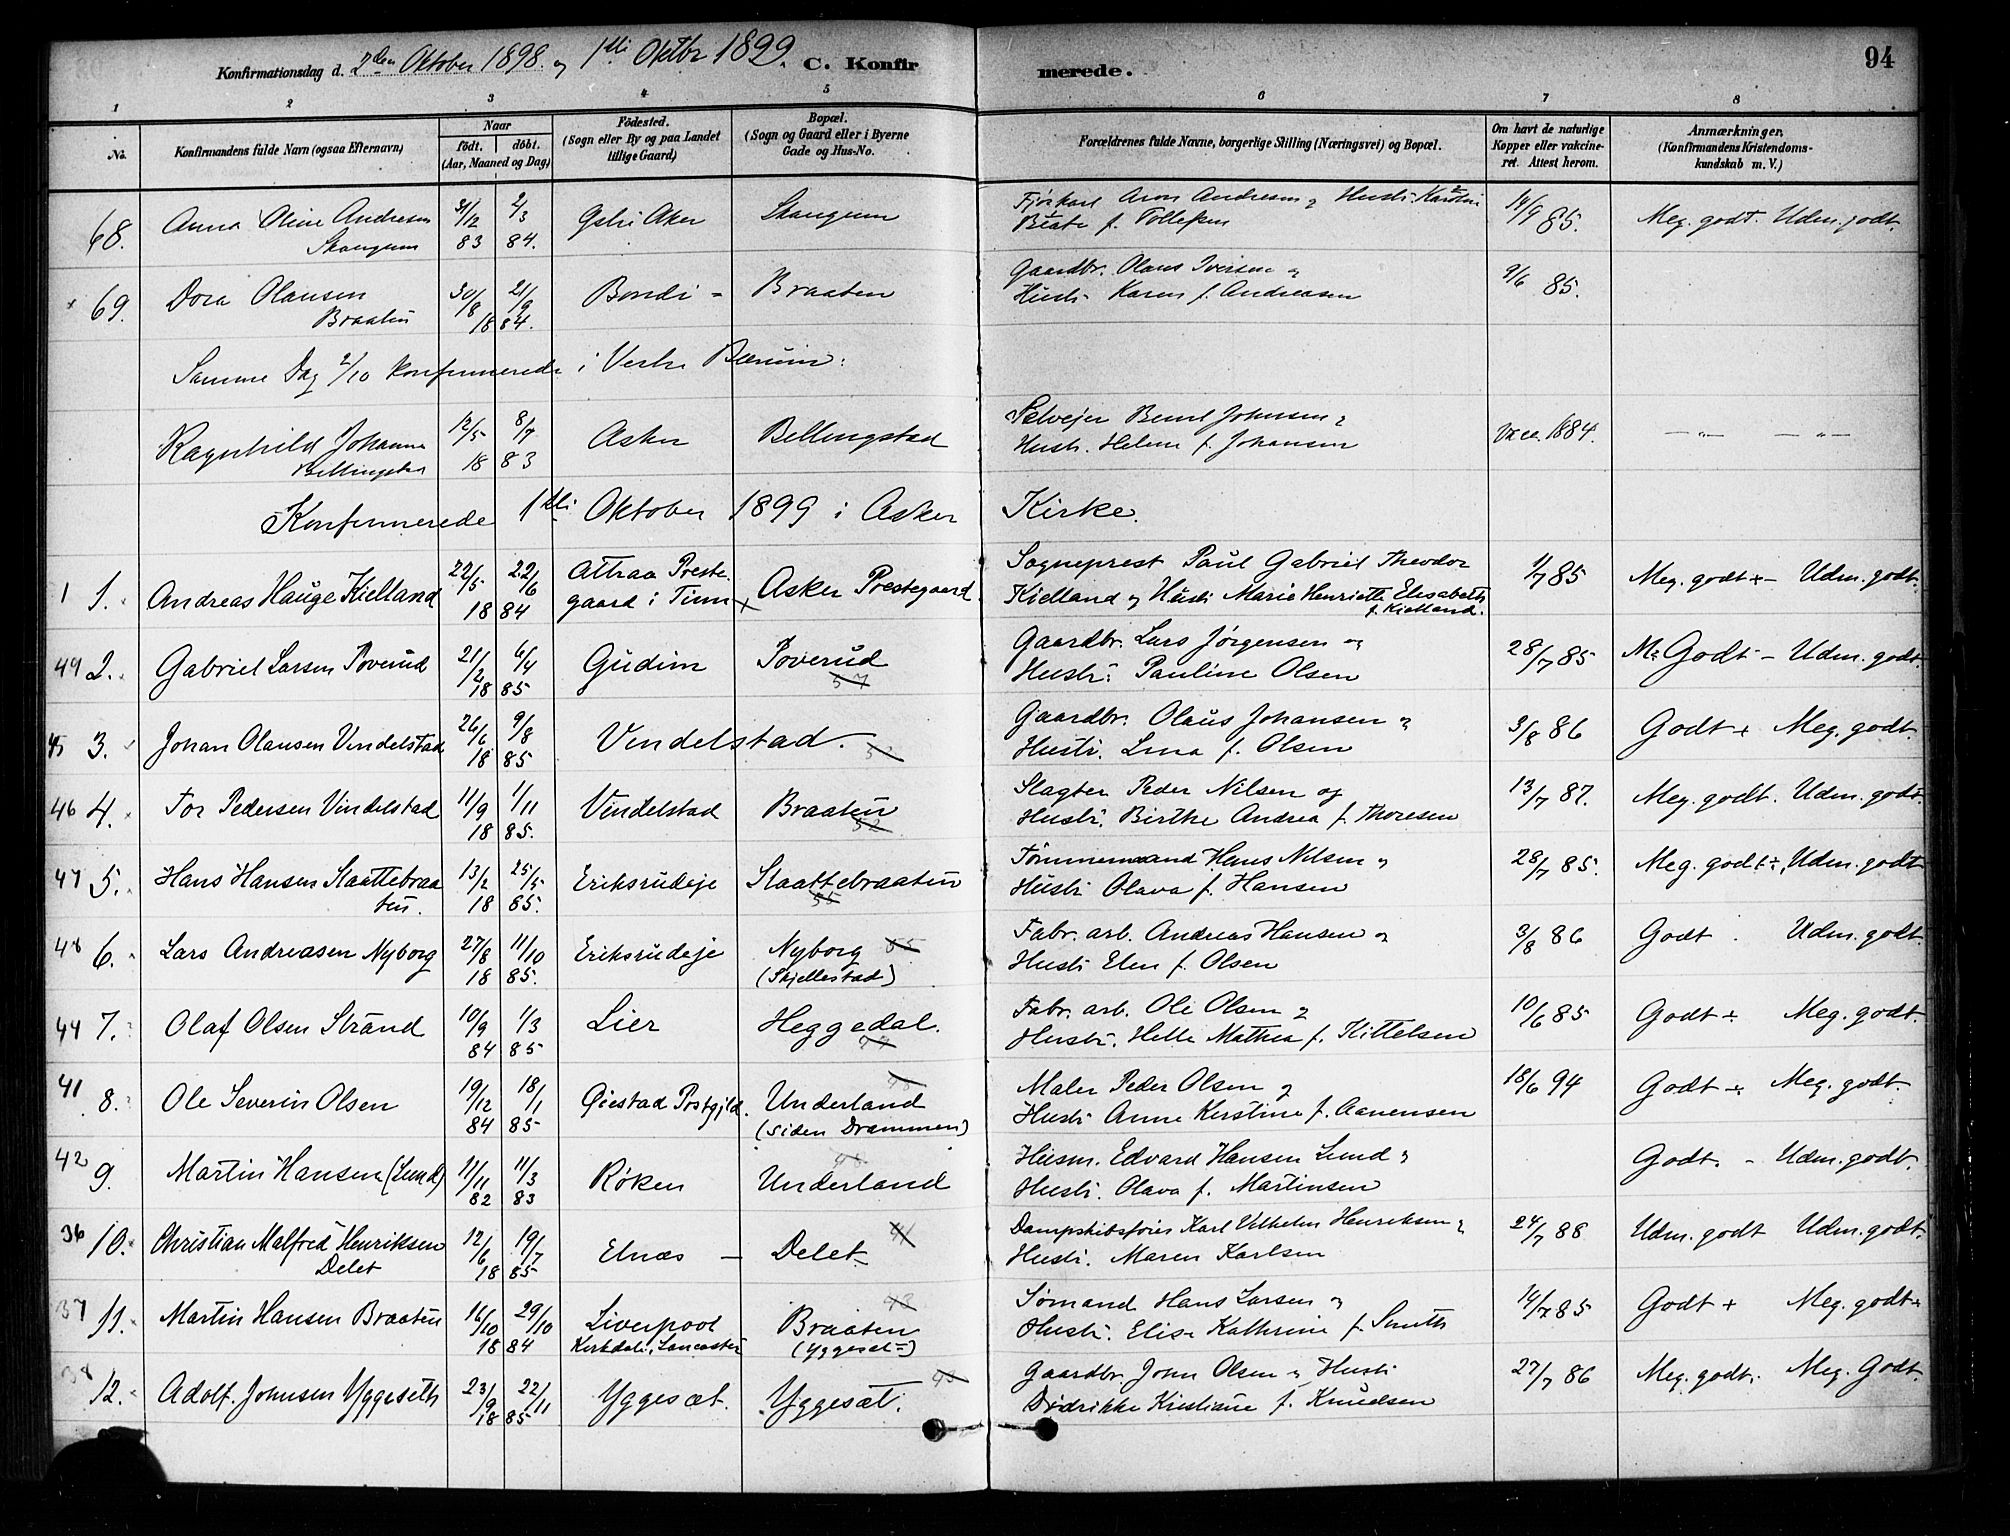 Konfirmationsdag d. 2den Oktober 1898. og 1sti Oktbr 1899. C. Konfirmerede. 94
1 2 3 4 5 6 7 8
No. Konfirmandens fulde Navn (ogsaa Efternavn) Naar født. døbt. (Aar, Maaned og Dag) Födested. (Sogn eller By og paa Landet tillige Gaard) Bopæl. (Sogn og Gaard eller i Byerne Gade og Hus-No. Forældrenes fulde Navne, borgerlige Stilling (Næringsvei) og Bopæl. Om havt de naturlige Kopper eller vakcineret. Attest herom. Anmærkninger, (Konfirmandens Kristendomskundskab m. V.)
68. Anna Oline Andresen Skaugum 31/12 83 2/3 84. Østri Aker Skaugum Aron Andresen & Hustr. Karoline Beate f. Tollefsen 14/9 85. Meg. godt. Udm. godt.
69. Dora Olausen Braaten 30/8 21/9 1884. Bondi - Braaten Gaardbr. Olaus Iversen & Hustr. Karen f. Andreasen 9/6 85.
Samme Dag 2/10 konfirmerede i Vestre Bærum:
Ragnhild Johanne Billingstad 12/5 8/7 1883 Asker Billingstad Selvejer Bernt Johnsen & Hustr. Helene f. Johansen vacc. 1884. — " — — " —
Konfirmerede 1sti Oktober 1899 i Asker Kirke.
1 1. Andreas Hauge Kielland 22/5 22/6 1884 Attraa Prestegaard i Tinn x Asker Prestegaard Sogneprest Paul Gabriel Theodor Kielland og Hustr. Marie Henriette Elisabeth f. Kielland. 1/7 85 Meg. godt + - Udm. godt.
49 2. Gabriel Larsen Poverud 21/2 6/4 1885 Gudim Poverud 57 Gaardbr. Lars Jørgensen og Hustr: Pauline Olsen 28/7 85 M: Godt - Udm. godt.
45 3. Johan Olausen Vindelstad 26/6 9/8 1885 Vindelstad. 52 Gaardbr. Olaus Johansen & Hustr. Lina f. Olsen 3/8 86 Godt + Meg. godt.
46 4. Tor Pedersen Vindelstad 11/9 1/11 1885. Vindelstad Braaten 52 Slagter Peder Nilsen og Hustr. Birthe Andrea f. Thoresen 13/7 87. Meg. godt. Udm. godt.
47 5. Hans Hansen Slaattebraaten. 13/2 25/5 1885. Eriksrudeje Slaattebraaten 55 Tømmermand Hans Nilsen & Hustr. Olava f. Hansen 28/7 85. Meg. godt ÷, Udm. godt
48 6. Lars Andreasen Nyborg 27/8 11/10 1885. Eriksrudeje Nyborg 55 (Skjellestad) Fabr. arb. Andreas Hansen & Hustr. Elen f. Olsen 3/8 86 Godt . Udm. godt.
44 7. Olaf Olsen Strand 10/9 84 1/3 85 Lier Heggedal. Fabr. arb. Ole Olsen & Hustr. Helle Mathea f. Kittelsen 10/6 85 Godt ÷ Meg. godt.
41 8. Ole Severin Olsen 19/12 84 18/1 85 Øiestad Pstgjld. Underland (siden Drammen) Maler Peder Olsen & Hustr. Anne Kirstine f. Aanensen 18/6 94 Godt ÷ Meg. godt.
42 9. Martin Hansen (Lund) 11/11 82 11/3 83 Røken Underland Husm. Edvard Hansen Lund & Hustr. Olava f. Martinsen Godt. - Udm. godt.
36 10. Christian Malfred Henriksen Delet 12/6 19/7 1885 Elnæs — Delet 41 Dampskibsfører Karl Vilhelm Henriksen & Hustr. Maren Karlsen 24/7 88 Udm. godt Udm. godt.
37 11. Martin Hansen Braaten 16/10 29/10 1884 Liverpool Kirkdale, Lancaster Braaten (Yggeset) 43 Sømand Hans Larsen & Hustr. Elise Kathrine f. Smith 14/7 85 Godt + Meg. godt +
38 12. Adolf Johnsen Yggeseth 23/9 22/11 1885 Yggesæt. Yggesæt. 43 Gaardbr. John Olsen & Hustr. Didrikke Kristiane f. Knudsen 27/7 86 Meg. godt. Meg. Godt.